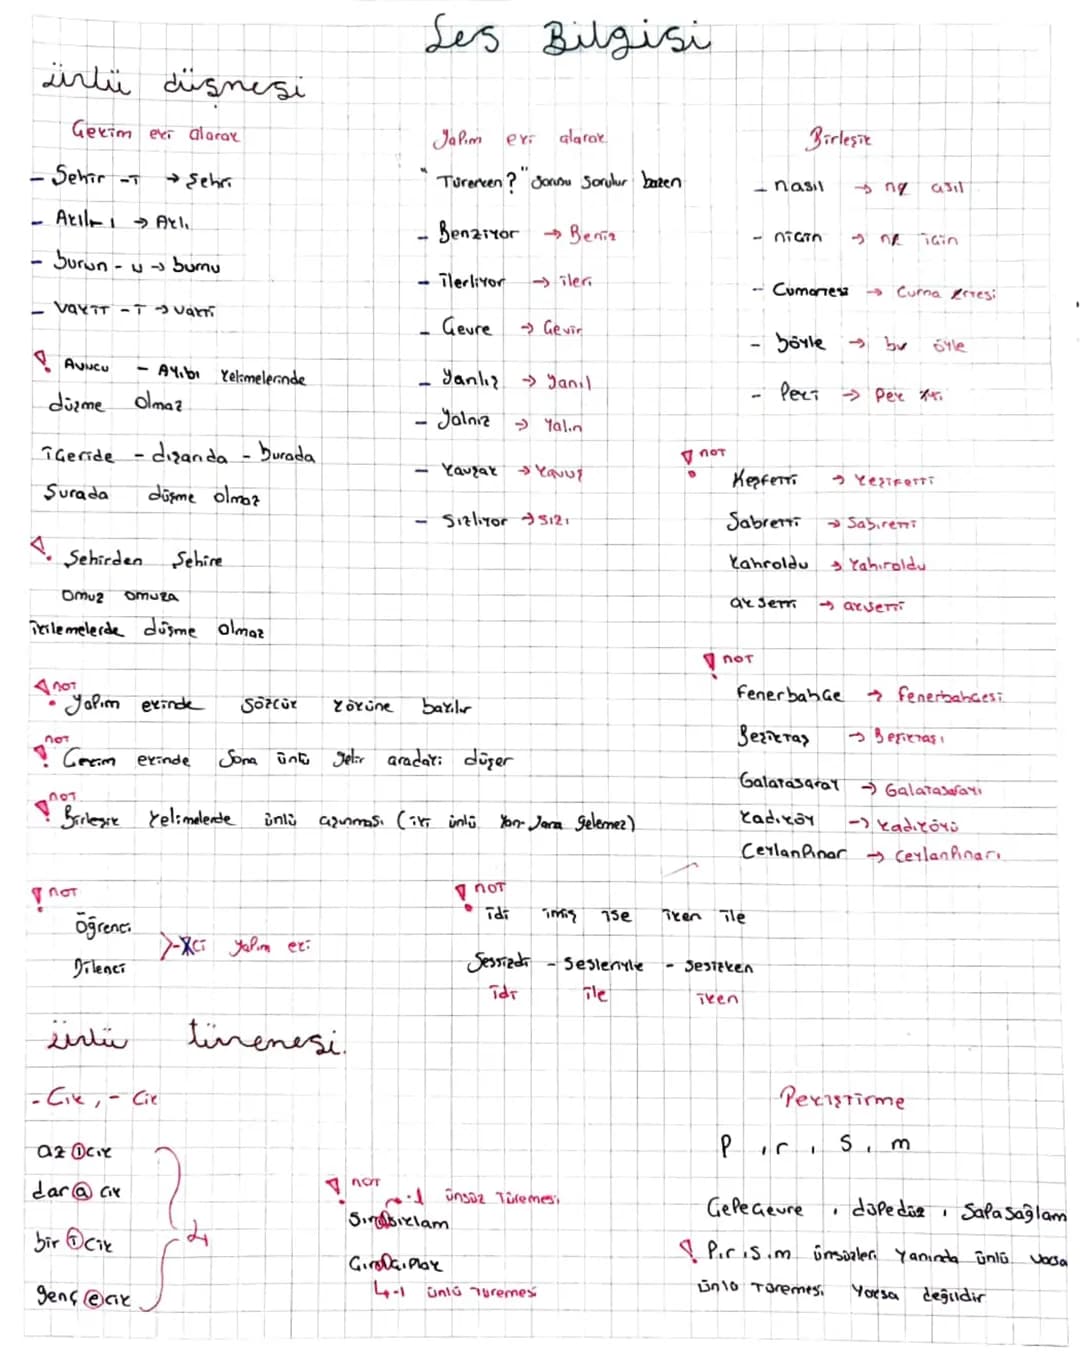 Ses Bilgisi
ünlü düşmesi
Çekim eki alarak
- Şehir -i → Şehri
- Akıl-ı → Aklı
- burun - u → burnu
- vakit -i → vakti
! Avucu - Ayıbı kelimelerinde
düşme olmaz
içeride - dışarıda - burada
Şurada düşme olmaz
! Şehirden Şehire
omuz omuza
ikilemelerde düşme olmaz
Yapım eki alarak
"Türerken?" Sorusu Sorulur bazen
- Benziyor → Beniz
- ilerliyor → ileri
- Çevre → Çevir
- Yanlış → Yanıl
- Yalnız → Yalın
- Kavşak → Kavuş
- Sızlıyor → sızı
Birleşik
- nasıl → ne asıl
- niçin → ne için
- Cumartesi → Cuma Ertesi
- böyle → bu öyle
- Peki → Pek iyi
! not
Keşfetti → keşifetti
Sabretti → Sabıretti
kahroldu → kahıroldu
aksetti → aksetti
! not
Fenerbahçe → fenerbahçesi
Beşiktaş → Beşiktaşı
Galatasaray → Galatasarayı
kadıköy → kadıköyü
Ceylanpınar → Ceylanpınarı
! not
Yapım ekinde sözcük köküne bakılır
! not
Çekim ekinde Sona ünlü gelir aradaki düşer
! not
Birleşik kelimelerde ünlü aşınması (iki ünlü Yan-Yana gelemez)
! not
Öğrenci
Dilenci
>-ci yapım eki
! not
idi imiş ise iken ile
Sessizdi - Sesleriyle - Sesizken
idi ile iken
ünlü türemesi.
- Cık, - Cik
az ı cık
dar a cık
bir i cik
genç e cik
4
! not
-1 ünsüz türemesi
Sırılsıklam
Çırılçıplak
↳-1 ünlü türemesi
Pekiştirme
P, r, s, m
Çepeçevre, düpedüz, Sapasağlam
! P,r,s,m ünsüzleri yanında ünlü varsa
ünlü türemesi yoksa değildir